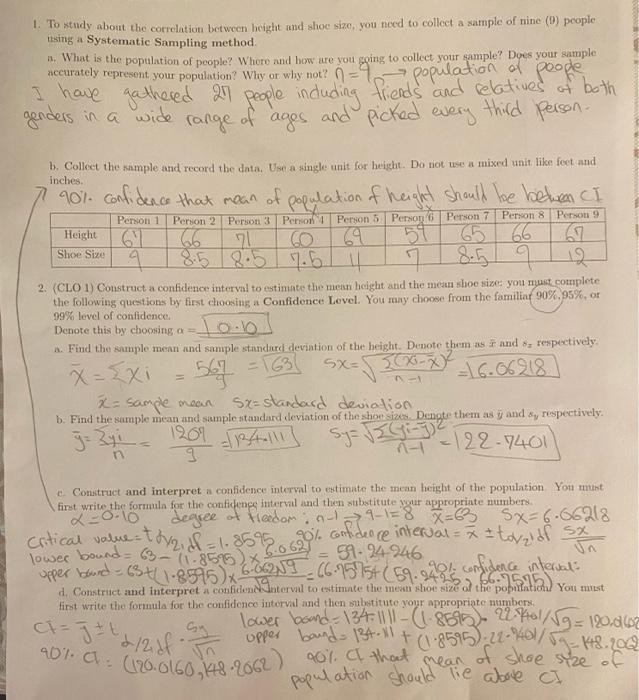 1. To study about the correlation between height and shoe size, you need to collect a sample of nine (9) people
using a Systematic Sampling method.
a. What is the population of people? Where and how are you going to collect your sample? Does your sample
accurately represent your population? Why or why not? n=9 → population of people
I have gathered 27 people including friends and relatives of both
genders in a wide range of ages and picked every third person.
b. Collect the sample and record the data. Use a single unit for height. Do not use a mixed unit like feet and
inches.
90%. confidence that mean of population of height should be between CI
Person 1 Person 2 Person 3 Person 4 Person 5 Person 6 Person 7 Person 8 Person 9
Height 66 71 60 69 65 66 67
Shoe Size 9 8.5 8.5 7.5 11 7 8.5 9 12
2. (CLO 1) Construct a confidence interval to estimate the mean height and the mean shoe size: you must complete
the following questions by first choosing a Confidence Level. You may choose from the familiar 90%, 95%, or
99% level of confidence.
Denote this by choosing α = 0.10
a. Find the sample mean and sample standard deviation of the height. Denote them as x̄ and sₓ respectively.
x̄ = Σxi = 567/9 = 63 Sx = √Σ(xi-x̄)²/n-1 = 6.06218
x̄ = sample mean Sx = standard deviation
b. Find the sample mean and sample standard deviation of the shoe sizes. Denote them as ȳ and s_y respectively.
ȳ = Σyi/n = 1209/9 = 134.111 Sy = √Σ(yi-ȳ)²/n-1 = 22.7401
c. Construct and interpret a confidence interval to estimate the mean height of the population. You must
first write the formula for the confidence interval and then substitute your appropriate numbers.
α = 0.10 degree of freedom: n-1 → 9-1=8 x̄=63 Sx=6.06218
Critical value = tα/2, df = 1.8595 90% confidence interval = x ± tα/2, df Sx/√n
lower bound = 63 - (1.8595) × 6.062/√9 = 59.24246
upper bound = 63 + (1.8595) × 6.062/√9 = 66.7575 90%. confidence interval: (59.2425, 66.7575)
d. Construct and interpret a confidence interval to estimate the mean shoe size of the population. You must
first write the formula for the confidence interval and then substitute your appropriate numbers.
CI = ȳ ± t α/2, df · Sy/√n lower bound = 134.1111 - (1.8595) · /√9 = 120.0160
upper bound = 134.11 + (1.8595) · /√9 = 148.2062
90%. CI = (120.0160, 148.2062) 90%. CI that mean of shoe size of
population should lie above CI